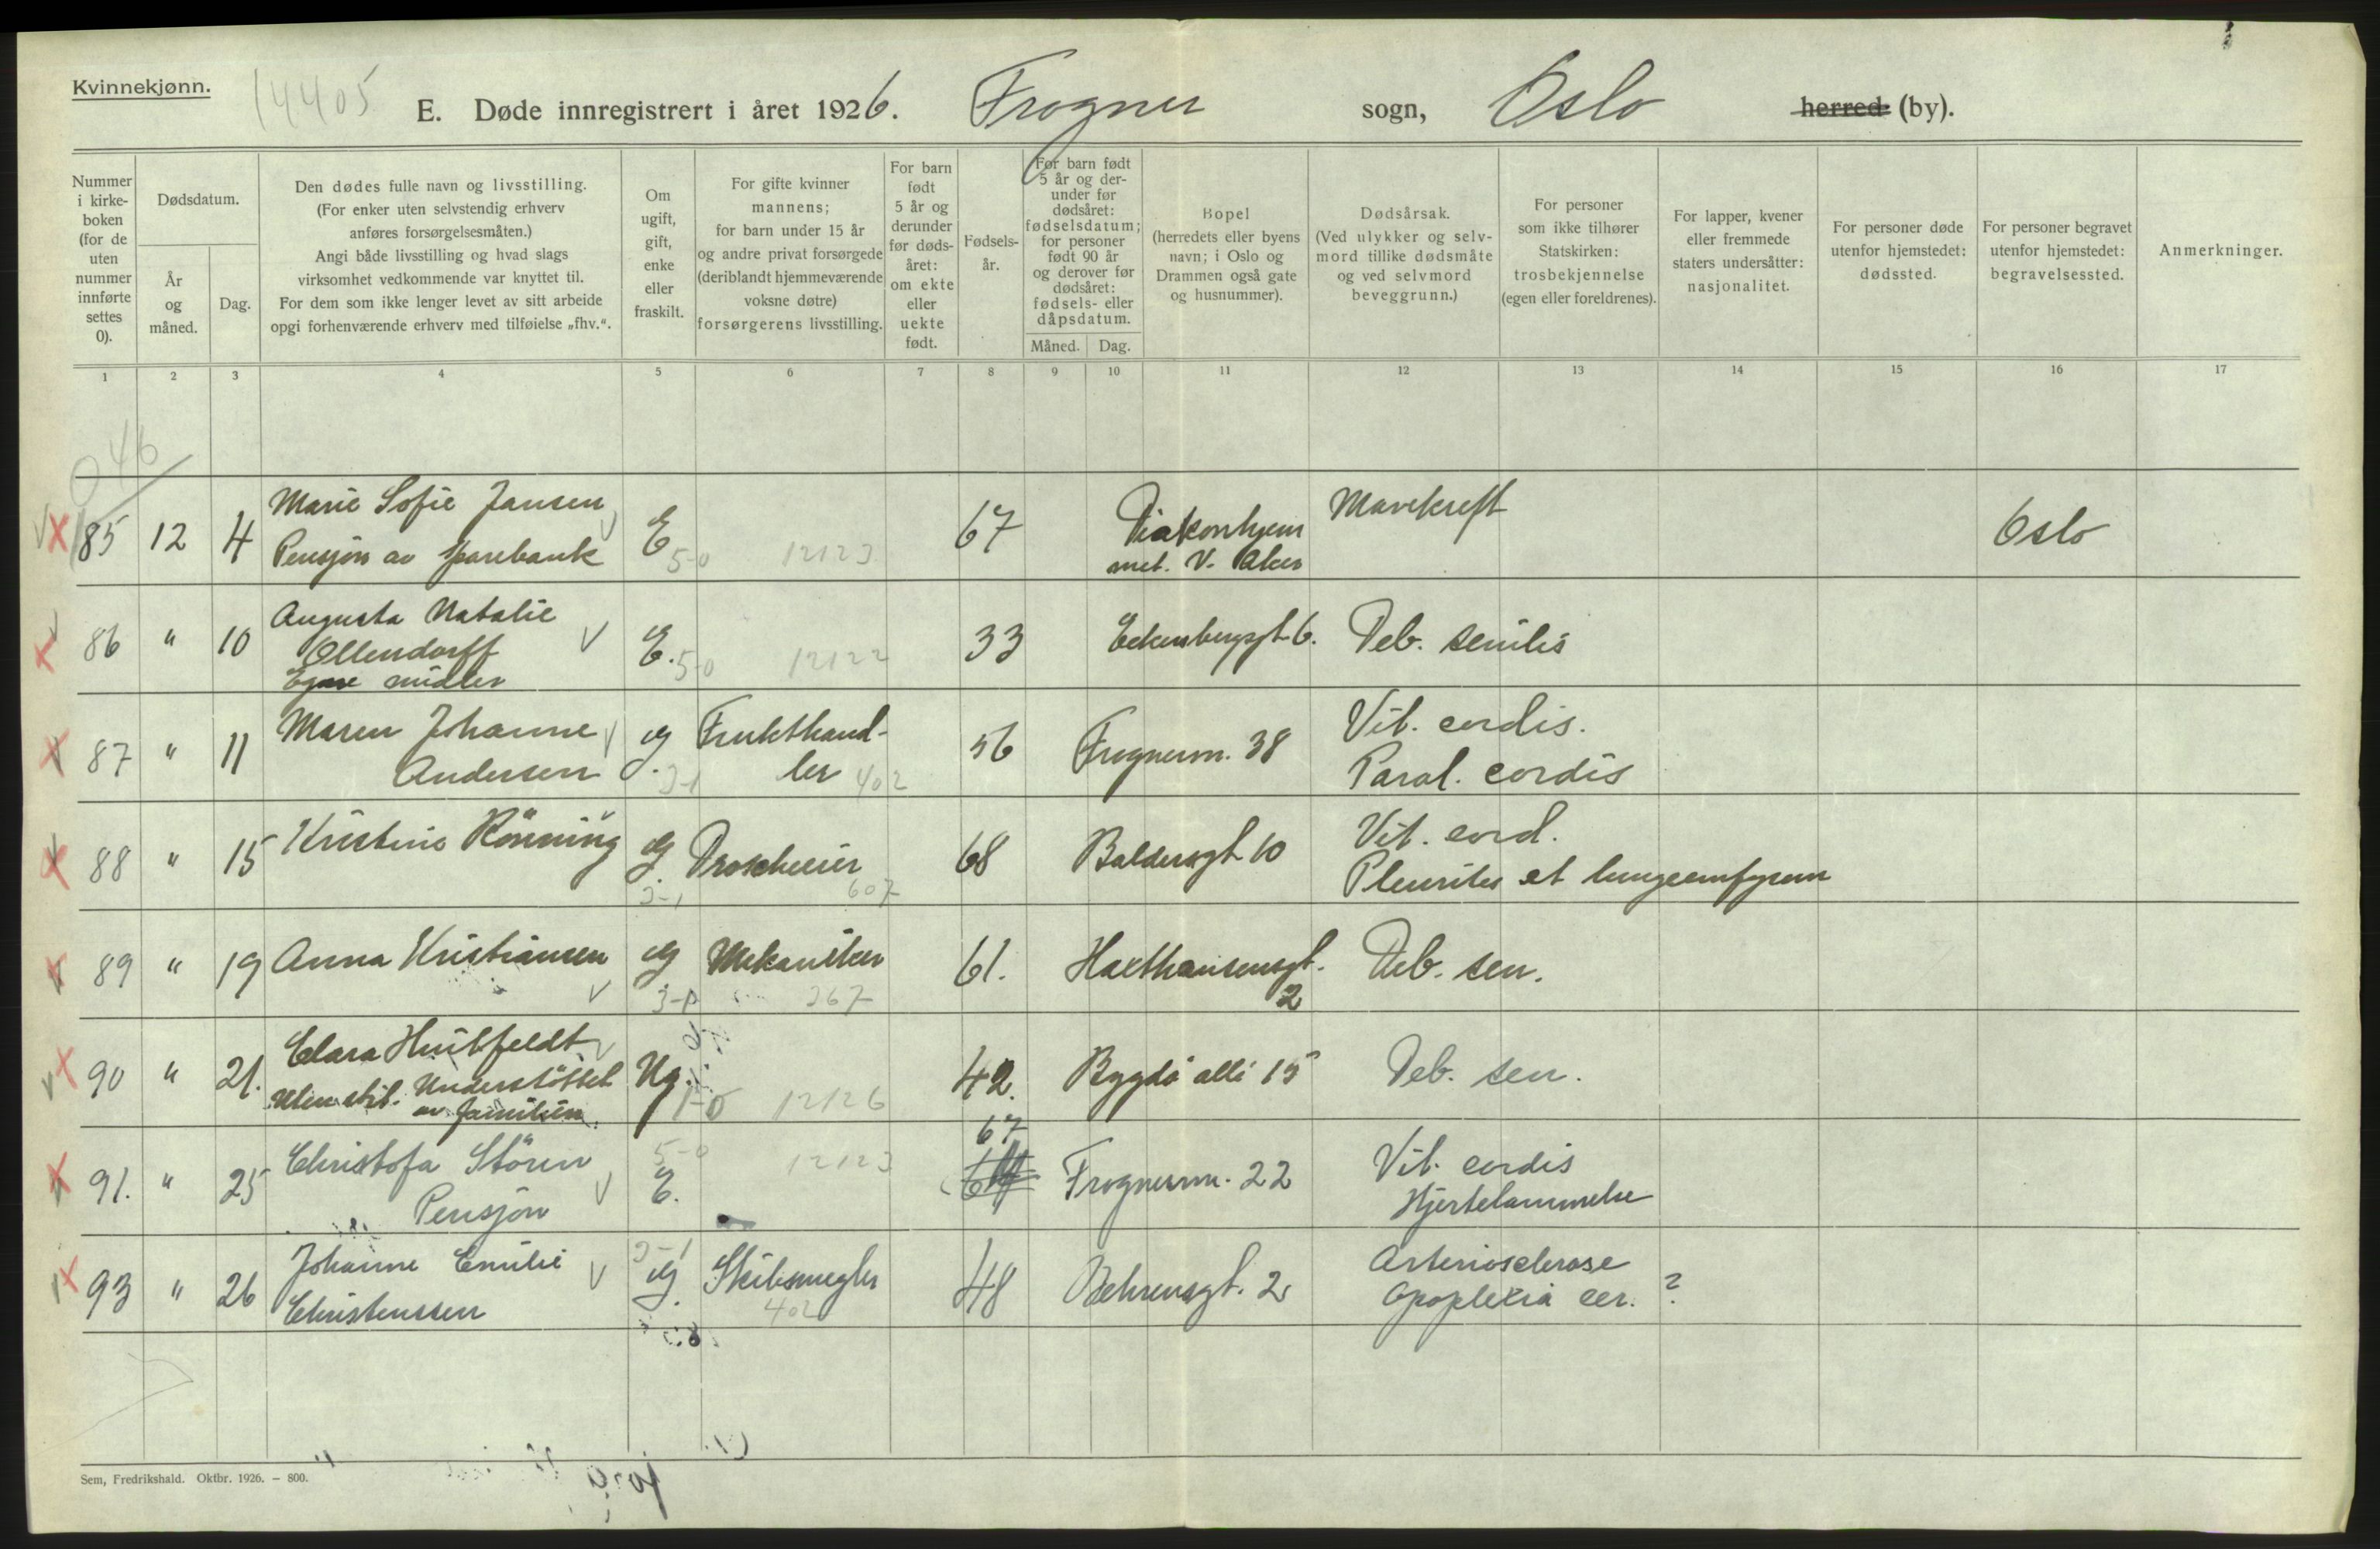 Kvinnekjønn.
14405
E. Døde innregistrert i året 1926. Frogner sogn, Oslo herred (by).
Nummer i kirke- boken (for de uten nummer innførte settes 0).
Dødsdatum.
År og måned.
Dag.
Den dødes fulle navn og livsstilling.
(For enker uten selvstendig erhverv
anføres forsørgelsesmåten.)
Angi både livsstilling og hvad slags
virksomhet vedkommende var knyttet til.
For dem som ikke lenger levet av sitt arbeide
opgi forhenværende erhverv med tilføielse „fhv.“.
Om ugift, gift, enke eller fraskilt.
For gifte kvinner
mannens;
for barn under 15 år
og andre privat forsørgede
(deriblandt hjemmeværende
voksne døtre)
forsørgerens livsstilling.
For barn født 5 år og derunder før døds- året: om ekte eller uekte født.
Fødsels- år.
For barn født
5 år og der-
under før
dødsåret:
fødselsdatum;
for personer
født 90 år
og derover før
dødsåret:
fødsels- eller
dåpsdatum.
Måned. Dag.
Bopel
(herredets eller byens
navn; i Oslo og
Drammen også gate
og husnummer).
Dødsårsak.
(Ved ulykker og selv-
mord tillike dødsmåte
og ved selvmord
beveggrunn.)
For personer
som ikke tilhører
Statskirken:
trosbekjennelse
(egen eller foreldrenes).
For lapper, kvener
eller fremmede
staters undersåtter:
nasjonalitet.
For personer døde
utenfor hjemstedet:
dødssted.
For personer begravet
utenfor hjemstedet:
begravelsessted.
Anmerkninger.
1 2 3 4 5 6 7 8 9 10 11 12 13 14 15 16 17
046
85 12 4 Marie Sofie Jansen E 67 Diakonhjem Mavekreft Oslo
Pensjon av sparebank 5-0 12123 met. V. Aker
86 " 10 Augusta Natalie E. 33 Eckersbergsgt 6. Deb. senilis
Ollendorff 5-0 12122
Egne midler
87 " 11 Maren Johanne g. Frukthand- 56 Frognervn. 38 Vit. cordis.
Andersen 3-1 ler 402 Paral. cordis
88 " 15 Kristine Rönning g. Droscheeier 68 Baldersgt 10 Vit. cord.
3-1 607 Pleurites et lungeemfysem
89 " 19 Anna Kristiansen g Mekaniker 61. Haxthausensgt. Deb. sen.
367 2
90 " 21. Clara Huitfeldt Ug. 42. Bygdö allé 15 Deb. sen.
Uten stil. Understöttet
av familien. 1-0 12126
91. " 25 Christofa Stören E. 67 Frognervn. 22 Vit. cordis
Pensjon 5-0 12123 Hjertelammelse
93 " 26 Johanne Emilie g. Skibsmegler 48 Behrensgt. 2 Arteriosclerose
Christenssen 3-1 402 Apoplexia cer. ?
Sem, Fredrikshald. Oktbr. 1926. — 800.